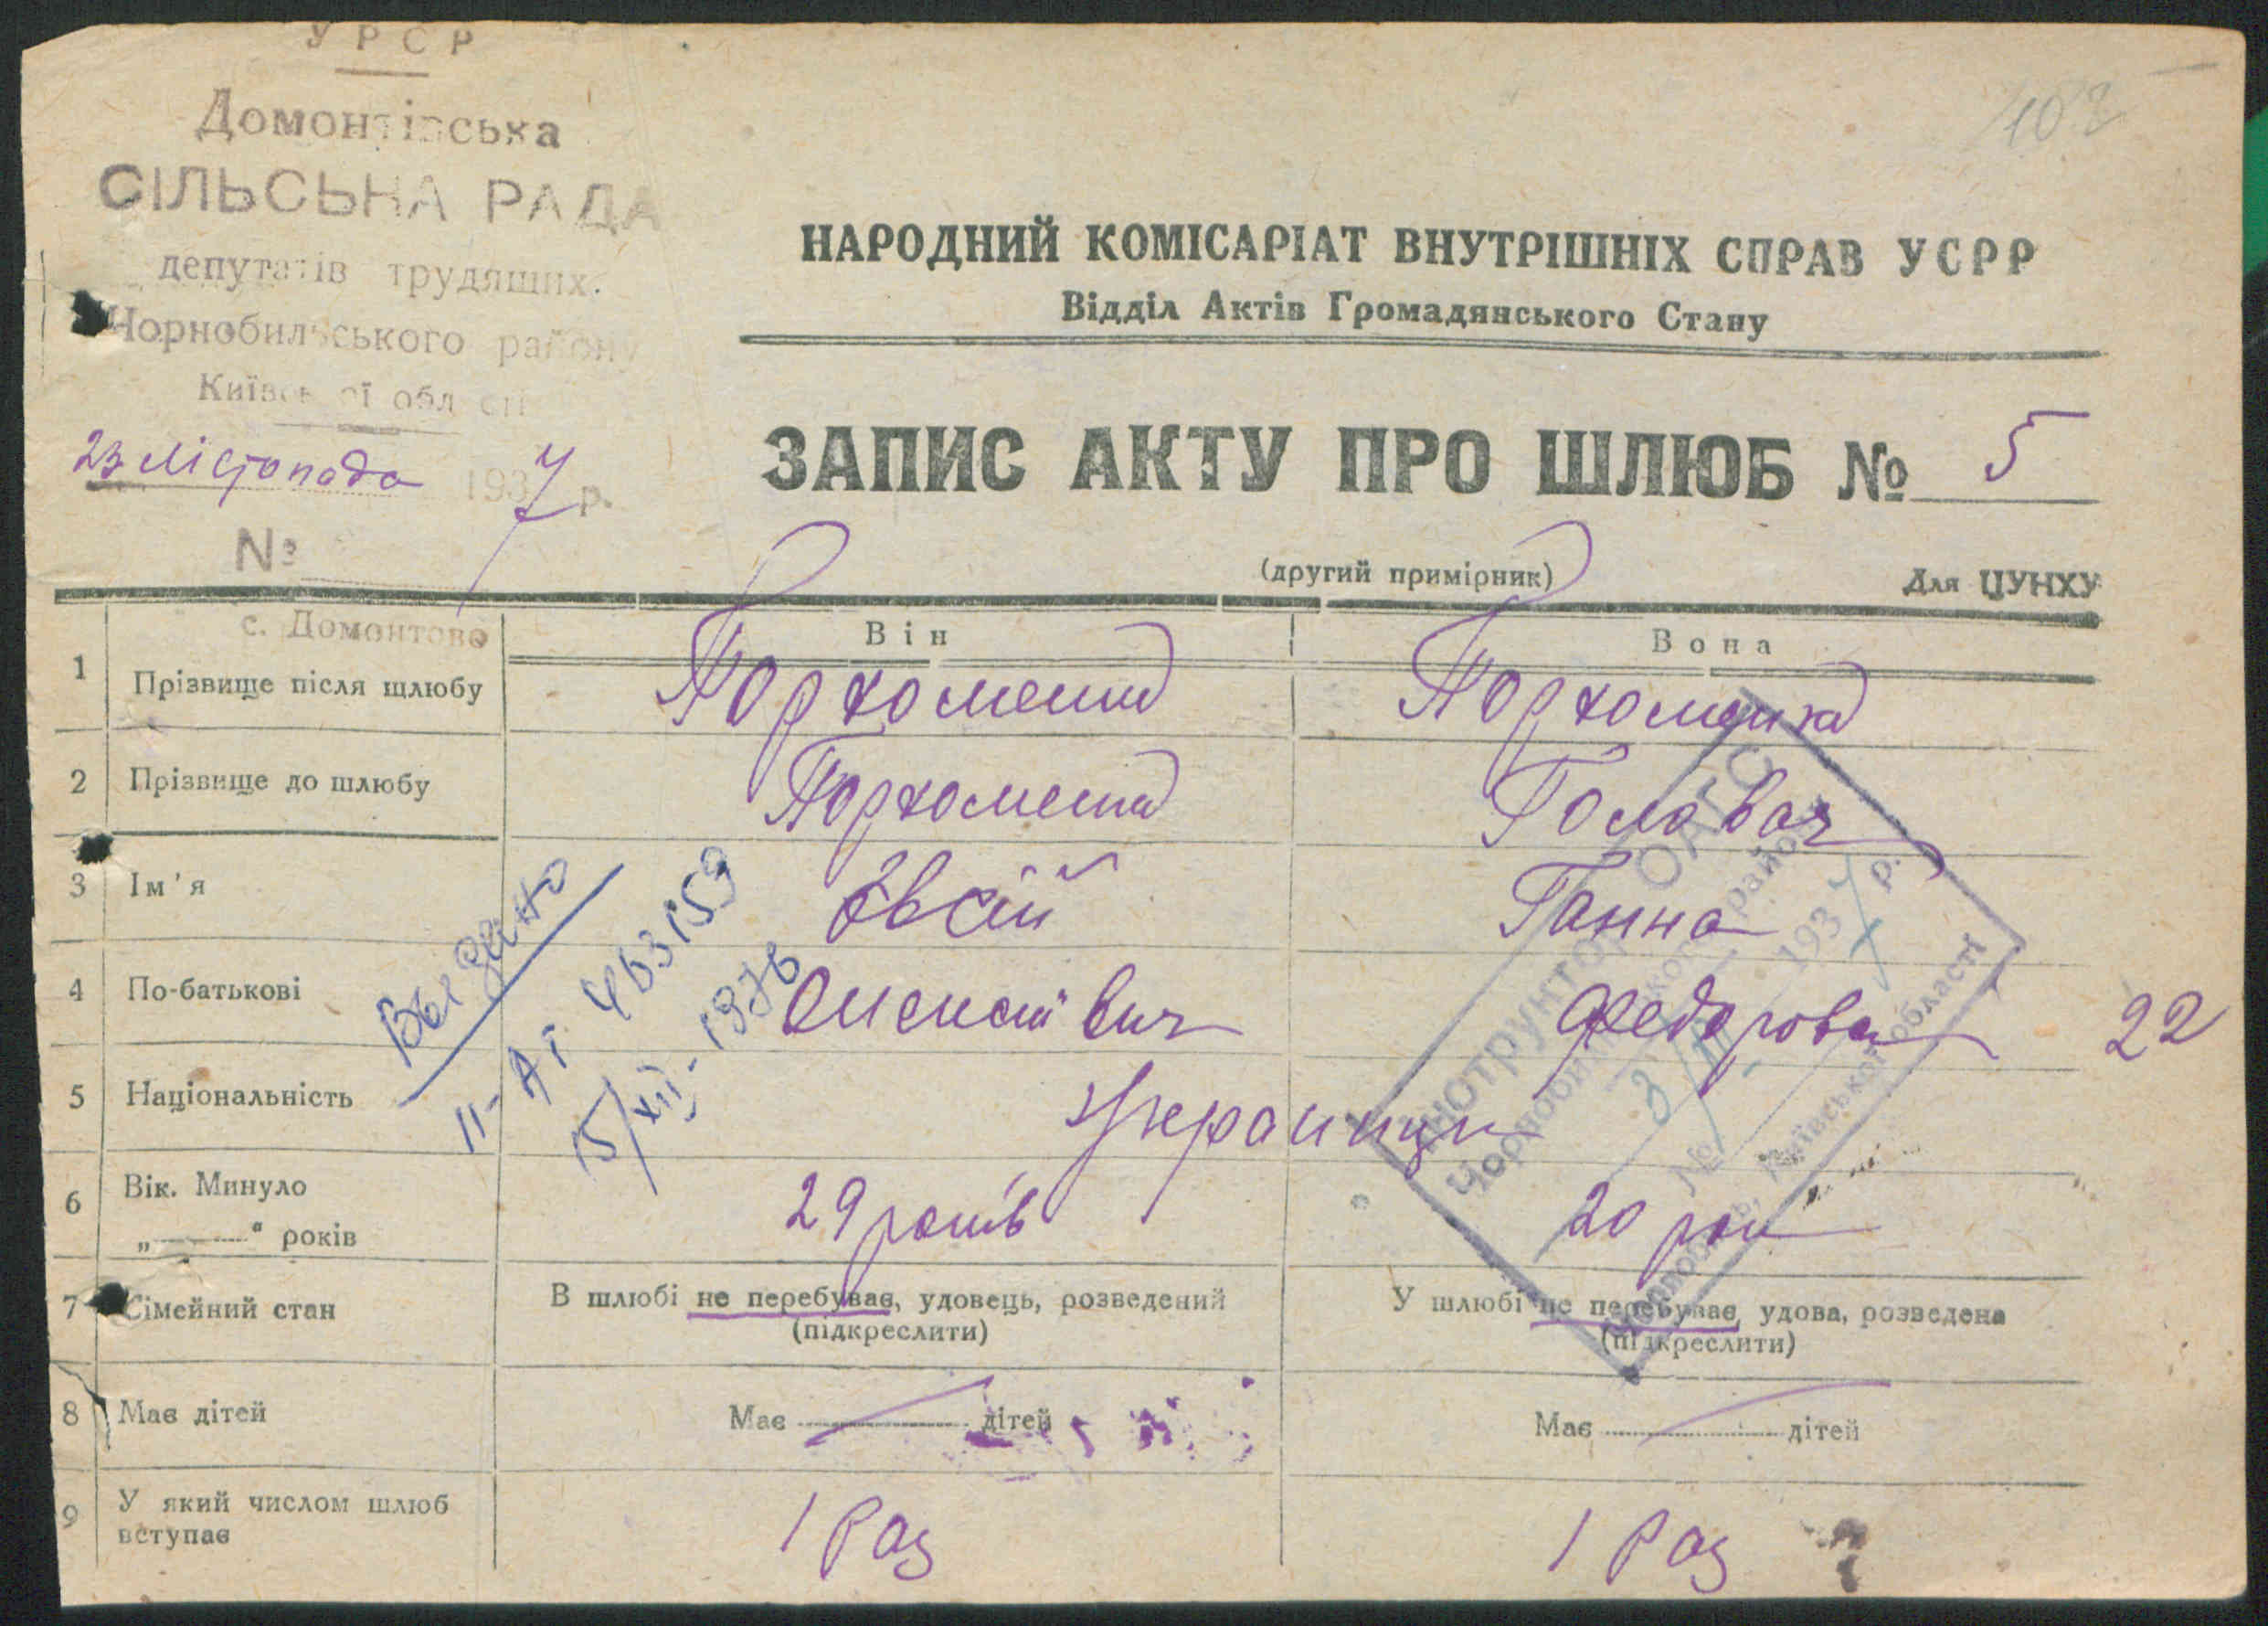 УРСР
Домонтівська
СІЛЬСЬНА РАДА
депутатів трудящих.
Чорнобильського району
Київської області
23 листопада 1937 р.
№
с. Домонтово
102
НАРОДНИЙ КОМІСАРІАТ ВНУТРІШНІХ СПРАВ УСРР
Відділ Актів Громадянського Стану
ЗАПИС АКТУ ПРО ШЛЮБ № 5
(другий примірник)
Для ЦУНХУ
Він Вона
1 Прізвище після щлюбу Порхоменко Порхоменко
2 Прізвище до шлюбу Порхоменко Головач
3 Ім'я Євсій Ганна
4 По-батькові Олексіївич Федорова 22
5 Національність Українци
6 Вік. Минуло 29 років 20 рок
„ “ років
7 Сімейний стан В шлюбі не перебуває, удовець, розведений У шлюбі не перебуває, удова, розведена
(підкреслити) (підкреслити)
8 Має дітей Має дітей Має дітей
9 У який числом шлюб 1 Раз 1 Раз
вступає
Выдано
II-АГ 463159
15/XII-1976
Інструнтор ОАГС
Чорнобильського району
№ 193 р.
Київської області